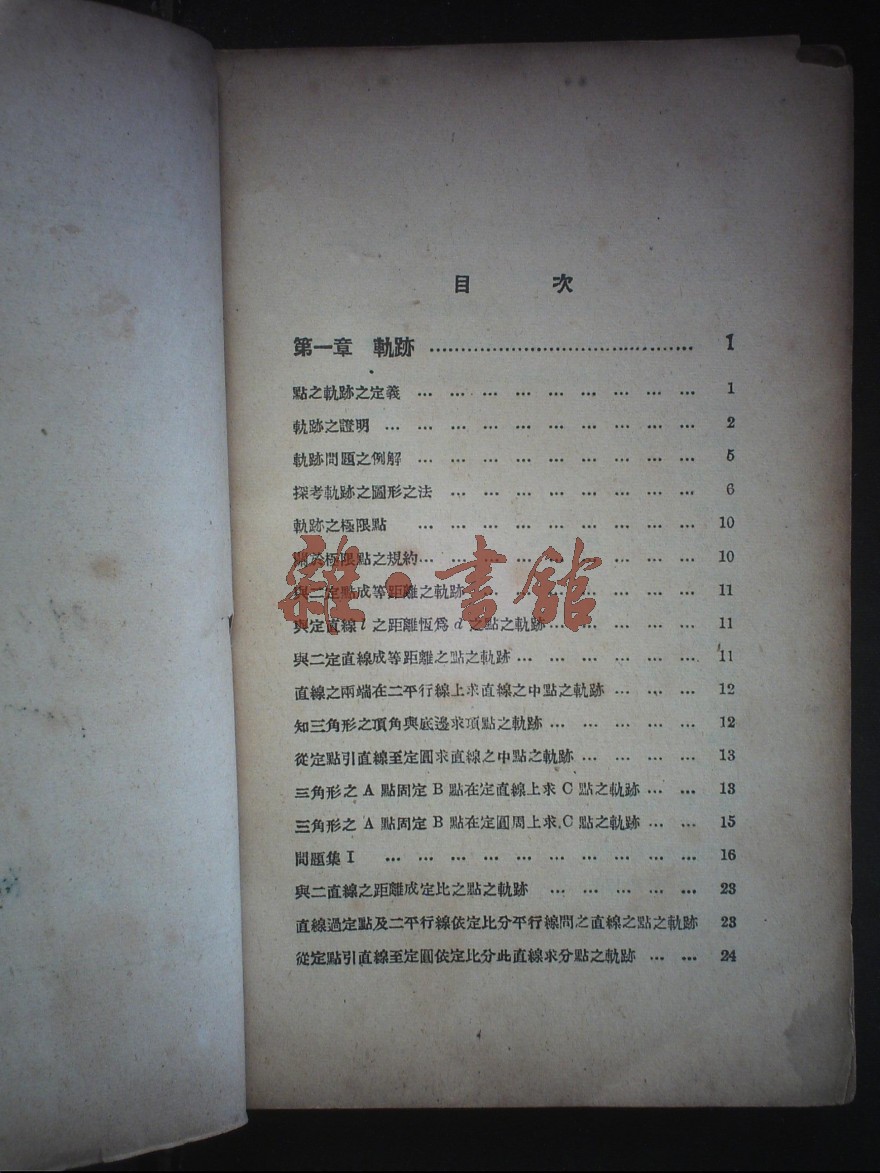 目 次
第一章 軌跡 …………………………………… 1
點之軌跡之定義 … … … … … … … … … 1
軌跡之證明 … … … … … … … … … … 2
軌跡問題之例解 … … … … … … … … … 5
探考軌跡之圖形之法 … … … … … … … … 6
軌跡之極限點 … … … … … … … … … 10
關於極限點之規約 … … … … … … … … … 10
與二定點成等距離之軌跡 … … … … … … … 11
與定直線 l 之距離恆爲 d 之點之軌跡 … … … … … 11
與二定直線成等距離之點之軌跡 … … … … … … 11
直線之兩端在二平行線上求直線之中點之軌跡 … … … 12
知三角形之頂角與底邊求頂點之軌跡 … … … … … 12
從定點引直線至定圓求直線之中點之軌跡 … … … … 13
三角形之 A 點固定 B 點在定直線上求 C 點之軌跡 … … 13
三角形之 A 點固定 B 點在定圓周上求 C 點之軌跡 … … 15
問題集 I … … … … … … … … … … 16
與二直線之距離成定比之點之軌跡 … … … … … 23
直線過定點及二平行線依定比分平行線間之直線之點之軌跡 23
從定點引直線至定圓依定比分此直線求分點之軌跡 … … 24
雜·書館